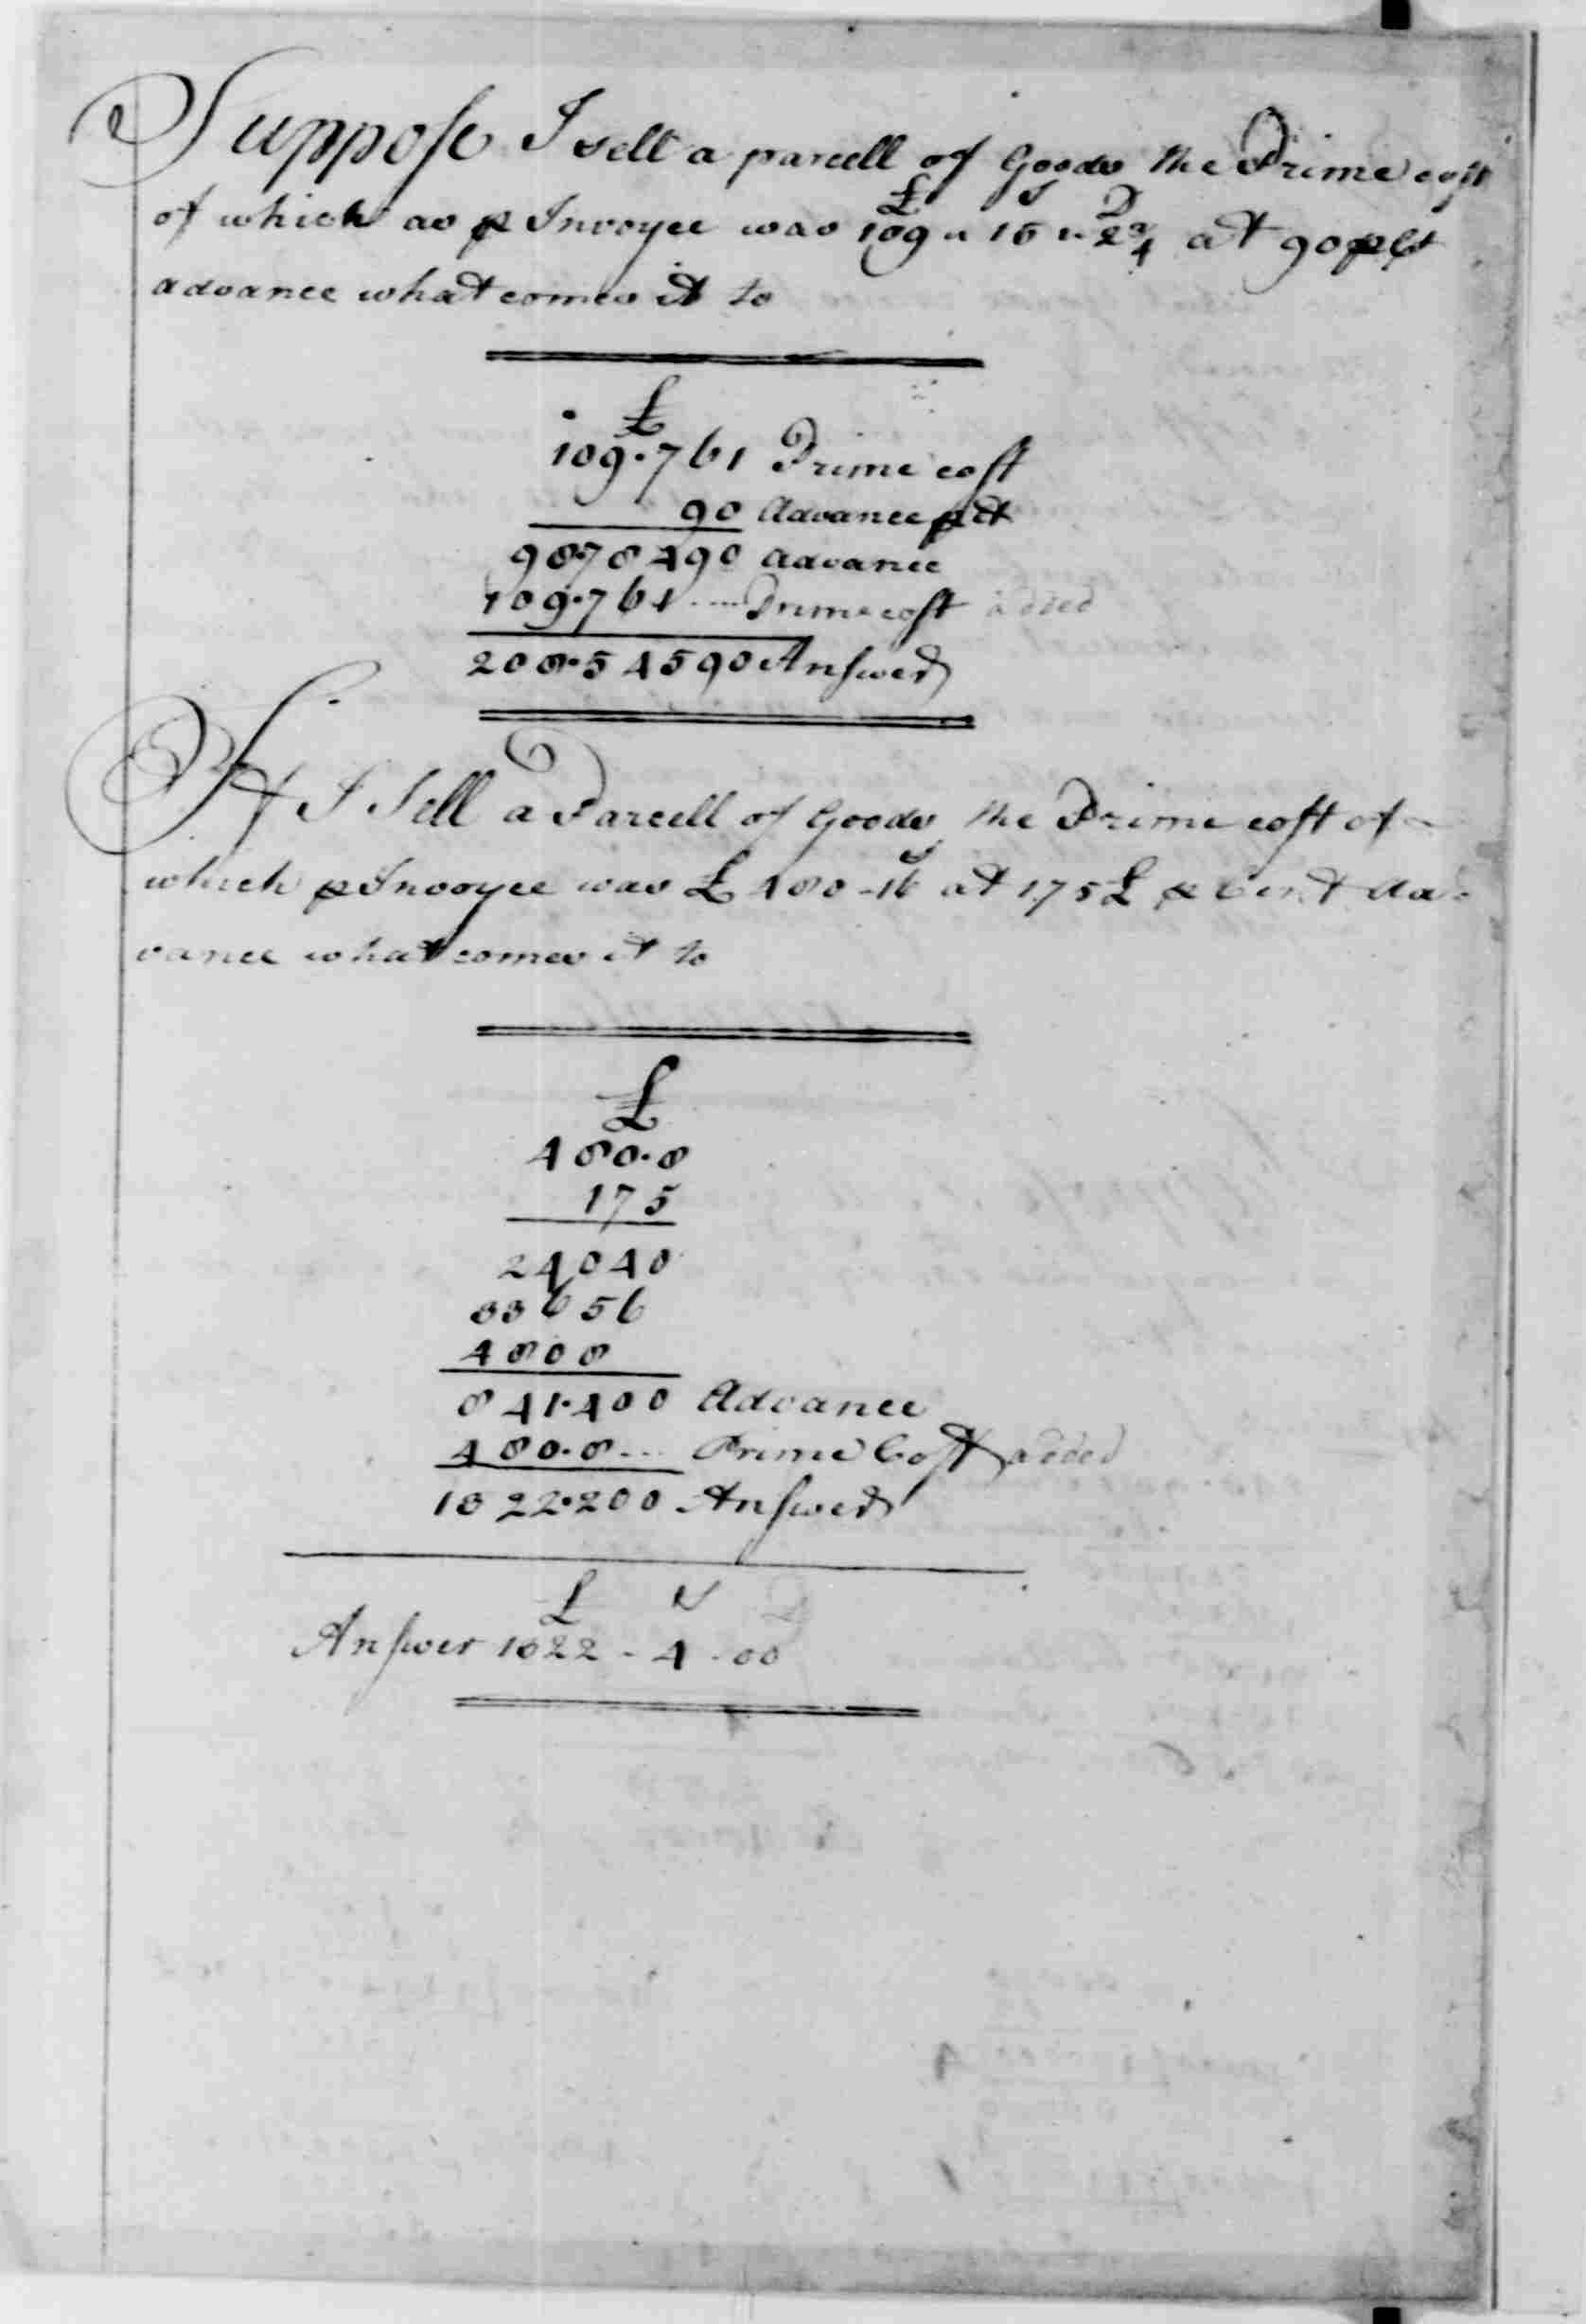 Suppose I sell a parcell of Goods the Prime cost
£ S D
of which as ⅌ Invoyce was 109 " 15 " 2¾ at 90 ⅌ Ct
advance what comes it to
£
109.761 Prime cost
90 Advance ⅌ Ct
98.78490 Advance
109.761 .... Prime cost added
208.54590 Answer
If I Sell a Parcell of Goods the Prime cost of
S
which ⅌ Invoyce was £ 480 - 16 at 175 £ ⅌ Cent Ad-
vance what comes it to
£
480.8
175
24040
33656
4808
841.400 Advance
480.8 ... Prime Cost added
1322.200 Answer
£ S D
Answer 1322 - 4 - 00